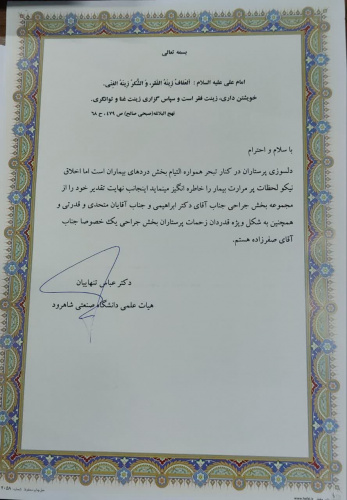 بسمه تعالی
امام علی علیه السلام : اَلعَفافُ زینَةُ الفَقرِ، وَ الشُّکرُ زینَةُ الغِنی.
خویشتن داری، زینت فقر است و سپاس گزاری زینت غنا و توانگری.
نهج البلاغه(صبحی صالح) ص ٤٧٩ ، ح ٦٨
با سلام و احترام
دلسوزی پرستاران در کنار تبحر همواره التیام بخش دردهای بیماران است اما اخلاق
نیکو لحظات پر مرارت بیمار را خاطره انگیز مینماید اینجانب نهایت تقدیر خود را از
مجموعه بخش جراحی جناب آقای دکتر ابراهیمی و جناب آقایان متحدی و قدرتی و
همچنین به شکل ویژه قدردان زحمات پرستاران بخش جراحی یک خصوصا جناب
آقای صفرزاده هستم.
دکتر عباس تنهاییان
هیات علمی دانشگاه صنعتی شاهرود